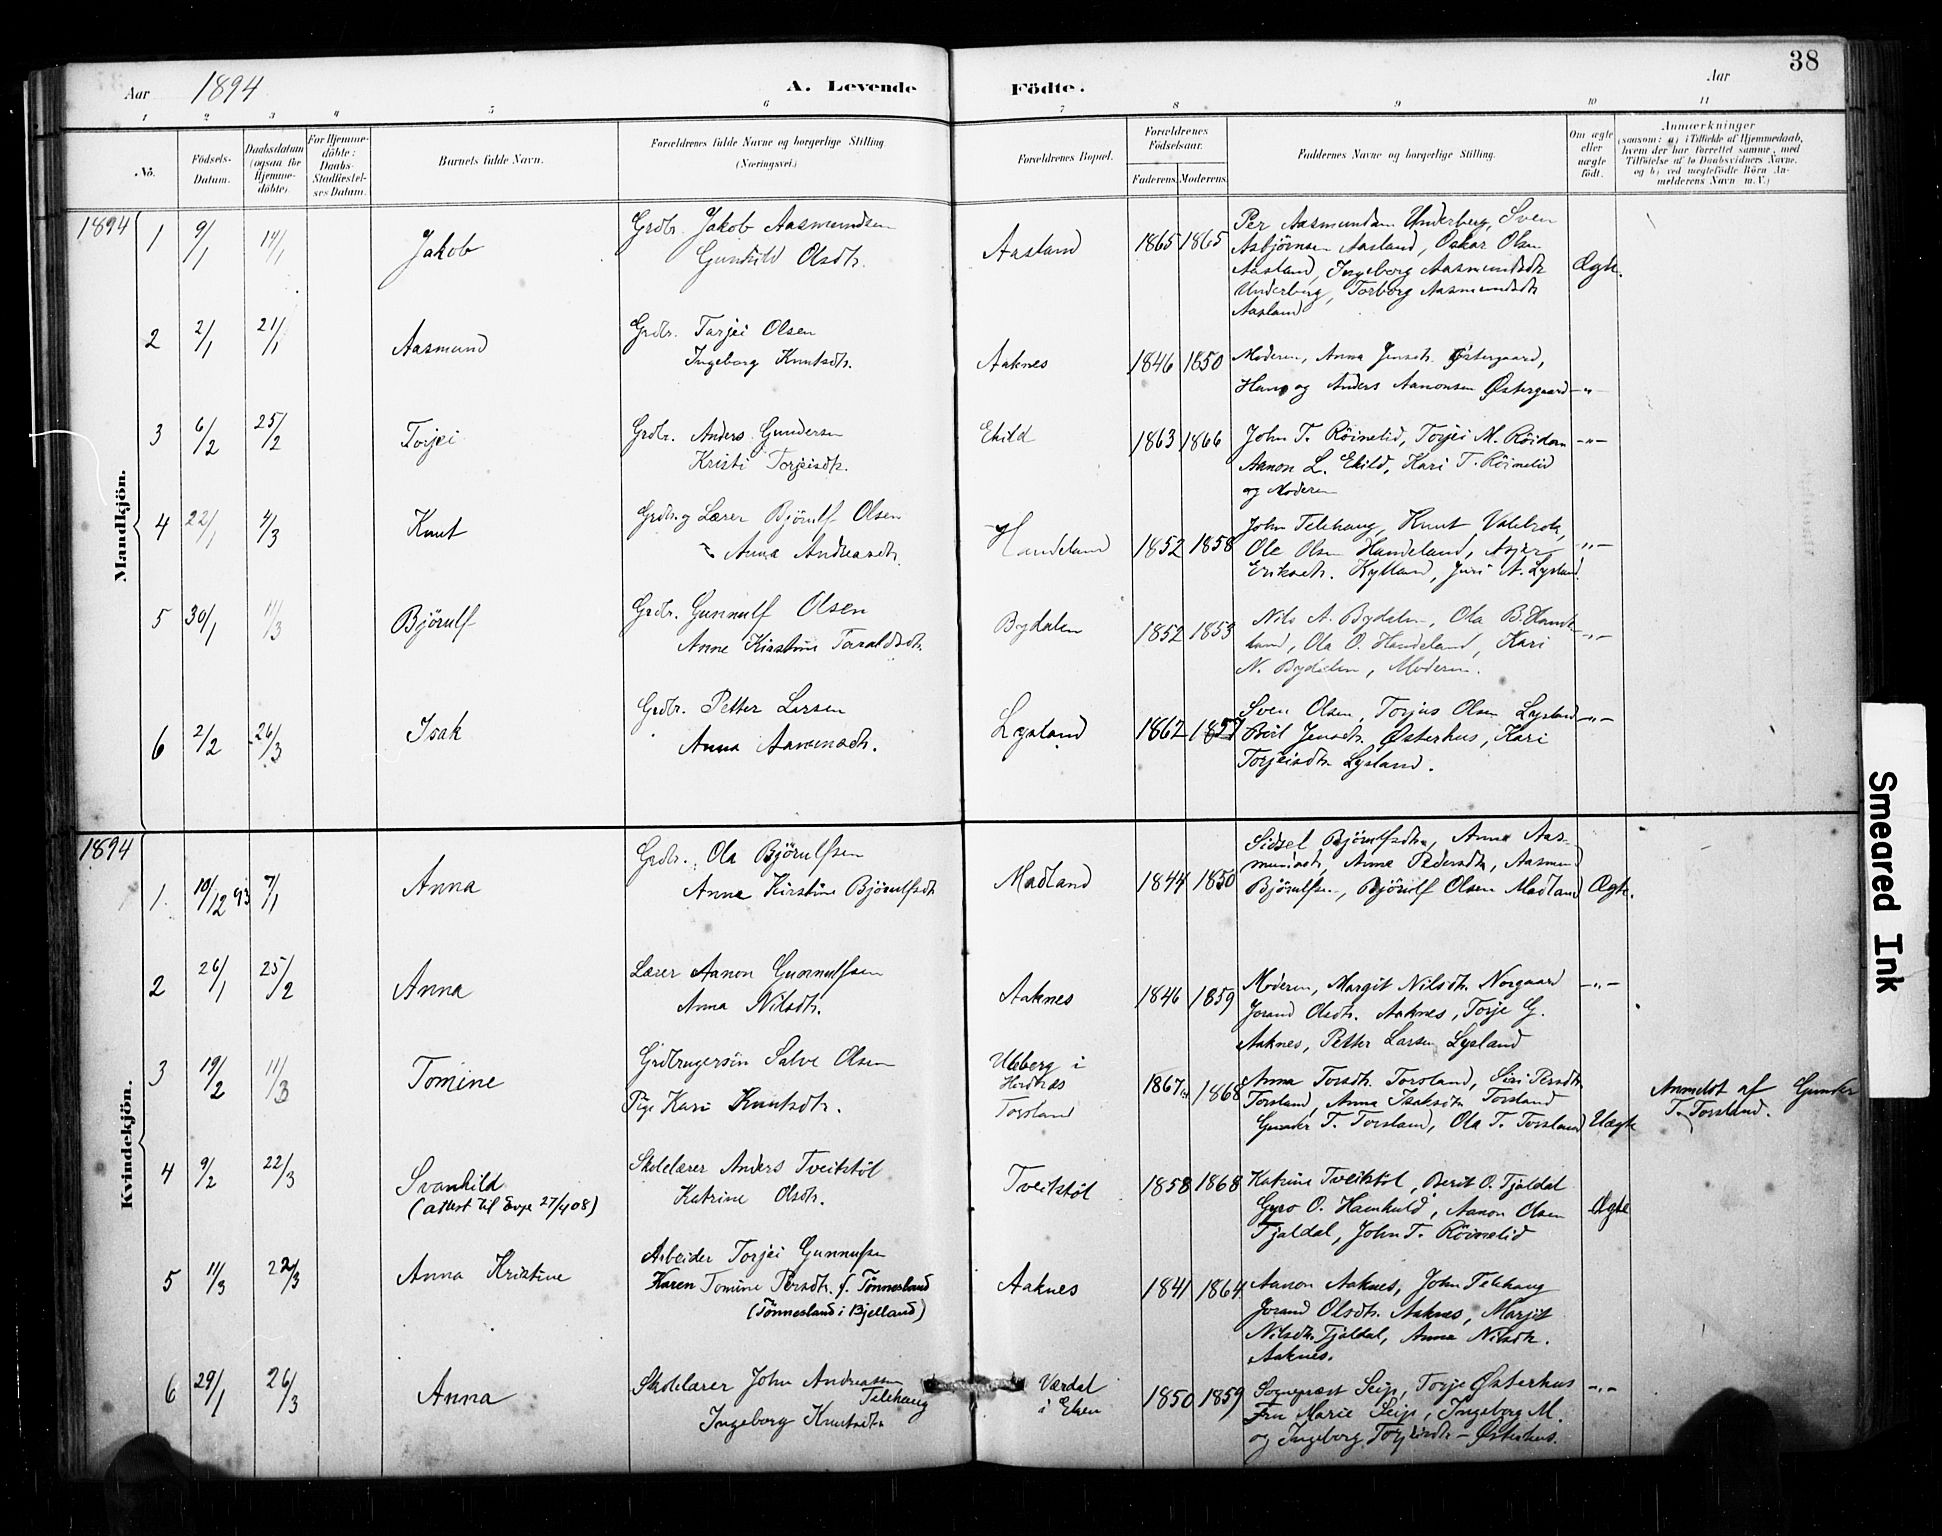 38
Aar 1894 A. Levende Födte. Aar
1 2 3 4 5 6 7 8 9 10 11
No. Födsels-Datum. Daabsdatum (ogsaa for Hjemme-döbte). For Hjemme-döbte: Daabs-Stadfæstel-ses Datum. Barnets fulde Navn. Forældrenes fulde Navne og borgerlige Stilling (Næringsvei.) Forældrenes Bopæl. Forældrenes Födselsaar. Faderens. Moderens. Faddernes Navne og borgerlige Stilling. Om ægte eller uægte födt. Anmærkninger
(saasom: a) i Tilfælde af Hjemmedaab,
hvem der har forrettet samme, med
Tilföielse af to Daabsvidners Navne.
og b) ved uægtefödte Börn An-
melderens Navn m. V.)
Mandkjön.
1894 1 9/1 14/1 Jakob Grdbr. Jakob Aasmundsen
Gunhild Olsdtr. Aasland 1865 1865 Per Aasmundsen Underberg, Sven
Asbjörnsen Aasland, Oskar Olsen
Aasland, Ingeborg Aasmundsdtr
Underberg, Torborg Aasmundsdtr
Aasland Ægte.
2 2/1 21/1 Aasmund Grdbr. Tarjei Olsen
Ingeborg Knutsdtr. Aaknes 1846 1850 Moderen, Anna Jensdtr. Østergaard,
Hans og Anders Aanonsen Østergaard -"-
3 6/2 25/2 Torjei Grdbr. Anders Gundersen
Kristi Torjeisdtr. Ekild 1863 1866 John T. Röinelid, Torjei M. Röidam -"-
Aanon L. Ekild, Kari T. Röinelid
og Moderen
4 22/1 4/3 Knut Grdbr. og Lærer Björulf Olsen
Anna Andreasdtr. Handeland 1852 1858 John Telehaug, Knut
Ole Olsen Handeland,
Eriksdtr. Kylland, Juri A. Lysland. -"-
5 30/1 11/3 Björulf Grdbr. Gunnulf Olsen
Anne Kirstine Taraldsdtr. Bydalen 1852 1853 Nils A. Bydalen, Ola B. Hande-
land, Ola O. Handeland, Kari
N. Bydalen, Moderen. -"-
6 2/2 26/3 Isak Grdbr. Petter Larsen
Anna Aanensdtr. Lysland 1862 1857 Sven Olsen, Torjus Olsen Lysland -"-
Jensdtr. Østerhus, Kari
Torjeisdtr. Lysland.
Kvindekjön.
1894 1 10/12 93 7/1 Anna Grdbr. Ola Björulfsen
Anna Kirstine Björulfsdtr Madland 1844 1850 Sidsel Björulfsdtr., Anna Aas-
mundsdtr, Anna Pedersdtr, Aasmund
Björulfsen, Björulf Olsen Madland Ægte.
2 26/1 25/2 Anna Lærer Aanon Gunnulfsen
Anna Nilsdtr. Aaknes 1846 1859 Moderen, Margit Nilsdtr. Norgaard -"-
Jorand Olsdtr. Aaknes, Torje G.
Aaknes, Petter Larsen Lysland
3 19/2 11/3 Tomine Grdbrugersön Salve Olsen
Pige Kari Knutsdtr. Ubberg i
Hordnes
Torsland 1867 1868 Anna Torsdtr. Torsland, Siri Persdtr
Torsland, Anna Isaksdtr. Torsland
Gunder T. Torsland, Ola T. Torsland Uægte Anmeldt af Gunder
T. Torsland.
4 9/2 22/3 Svanhild
(attest til Evje 27/4 08) Skolelærer Anders Tveitstöl
Katrine Olsdtr. Tveitstöl 1858 1868 Katrine Tveitstöl, Berit O. Tjaldal
Gyro O. Hamkuld, Aanon Olsen
Tjaldal, John T. Röinelid Ægte
5 11/3 22/3 Anna Kristine Arbeider Torjei Gunnufsen
Karen Tomine Persdtr. f. Tønnesland
(Tønnesland i Bjelland) Aaknes 1841 1864 Aanon Aaknes, John Telehaug
Jorand Olsdtr. Aaknes, Marjit
Nilsdtr. Tjaldal, Anna Nilsdtr.
Aaknes.
6 29/1 26/3 Anna Skolelærer John Andreassen
Telehaug
Ingeborg Knutsdtr Værdal
i Eken 1850 1859 Sogneprest Seip, Torje Østerhus -"-
Fru Marie Seip, Ingeborg M.
og Ingeborg Torjeisdtr - Østerhus.
Smeared Ink